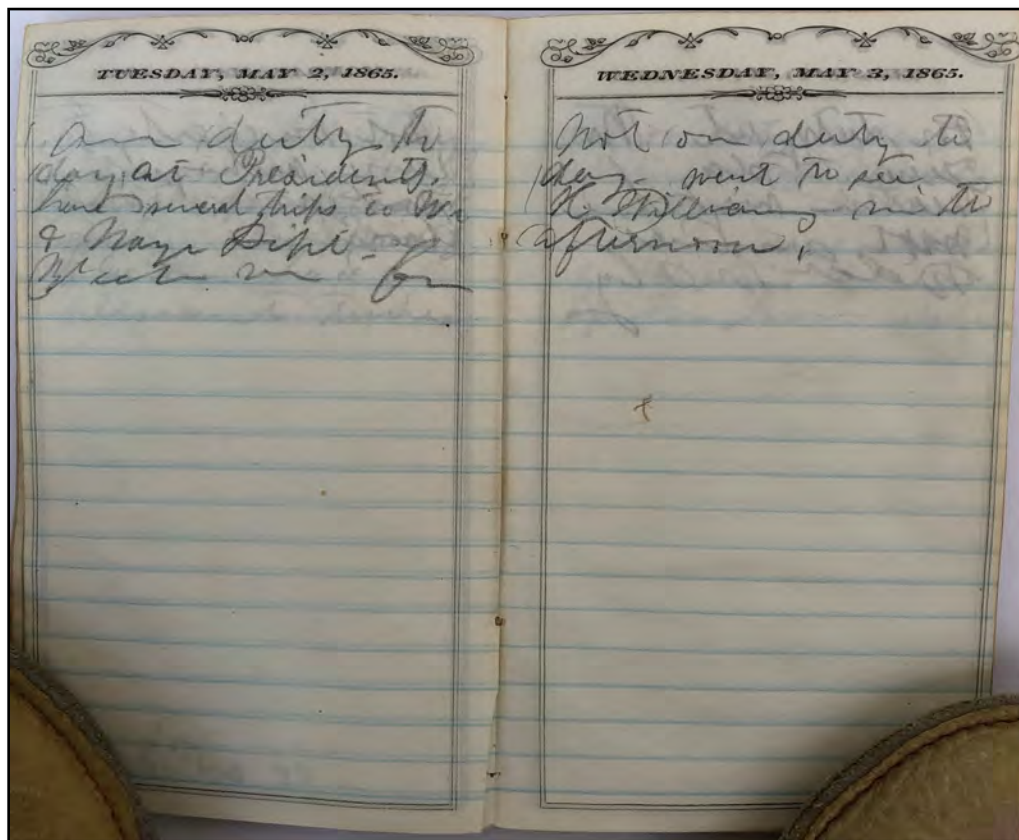 TUESDAY, MAY 2, 1865.
am duty to
day at Presidents,
have several trips to War
& Navy Dept -
WEDNESDAY, MAY 3, 1865.
Not on duty to
day - went to see
H. Williams in the
afternoon,